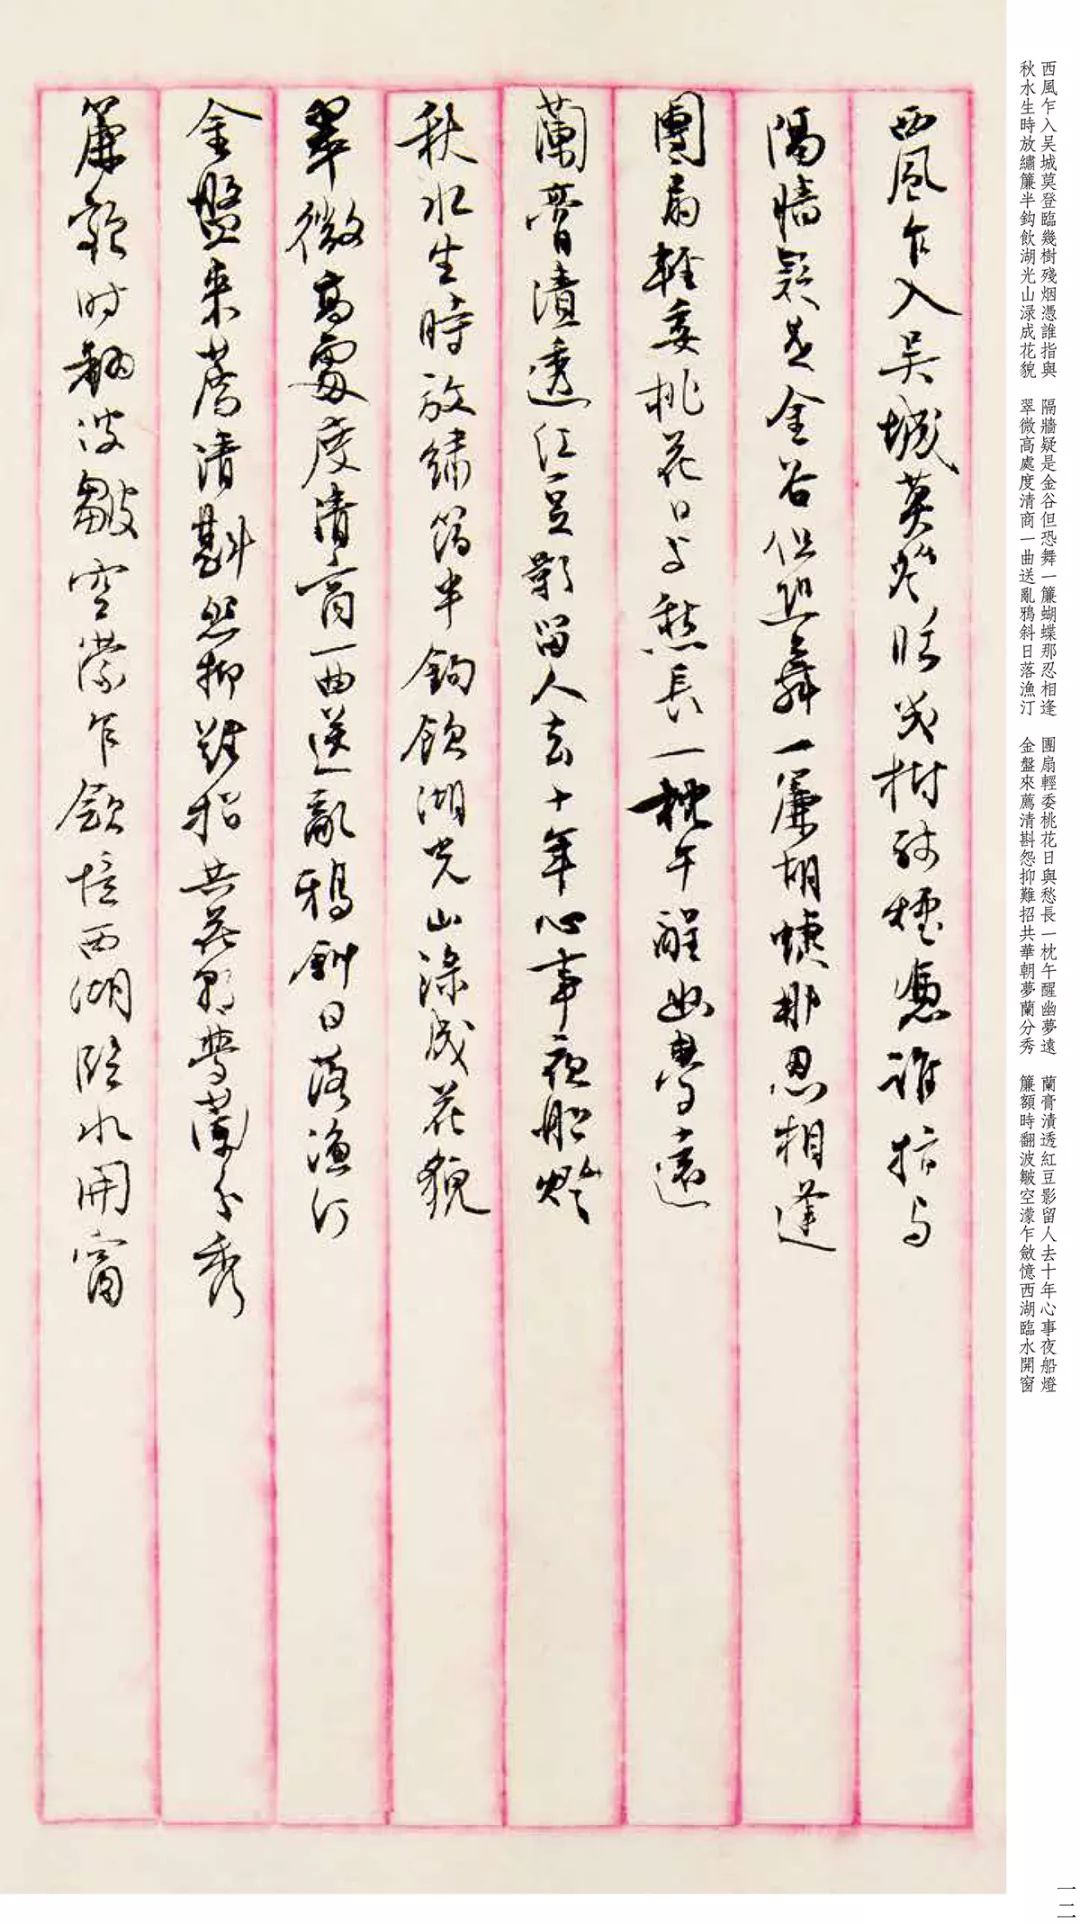 西風乍入吴城莫登臨幾樹殘烟憑誰指與
隔牆疑是金谷但恐舞一簾蝴蝶那忍相逢
團扇輕委桃花日與愁長一枕午醒幽夢遠
蘭膏漬透紅豆影留人去十年心事夜船燈
秋水生時放繡簾半鈎飲湖光山渌成花貌
翠微高處度清商一曲送亂鴉斜日落漁汀
金盤來薦清斟怨抑難招共花朝夢蘭分秀
簾額時翻波皺空濛乍斂憶西湖臨水開窗
西風乍入吴城莫登臨幾樹殘烟憑誰指與 隔牆疑是金谷但恐舞一簾蝴蝶那忍相逢 團扇輕委桃花日與愁長一枕午醒幽夢遠 蘭膏漬透紅豆影留人去十年心事夜船燈
秋水生時放繡簾半鈎飲湖光山渌成花貌 翠微高處度清商一曲送亂鴉斜日落漁汀 金盤來薦清斟怨抑難招共華朝夢蘭分秀 簾額時翻波皺空濛乍斂憶西湖臨水開窗
一二